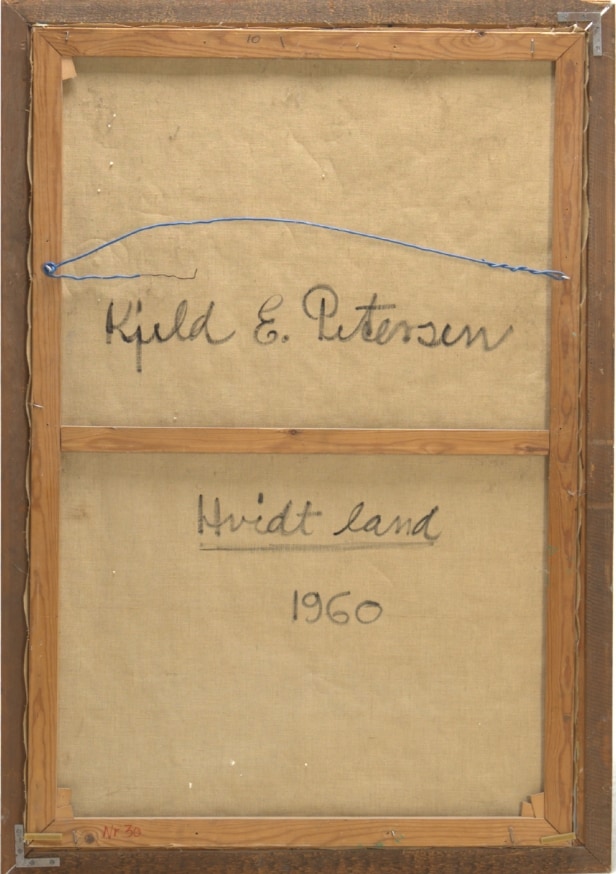 10
Kjeld E. Petersen
Hvidt land
1960
Nr 30